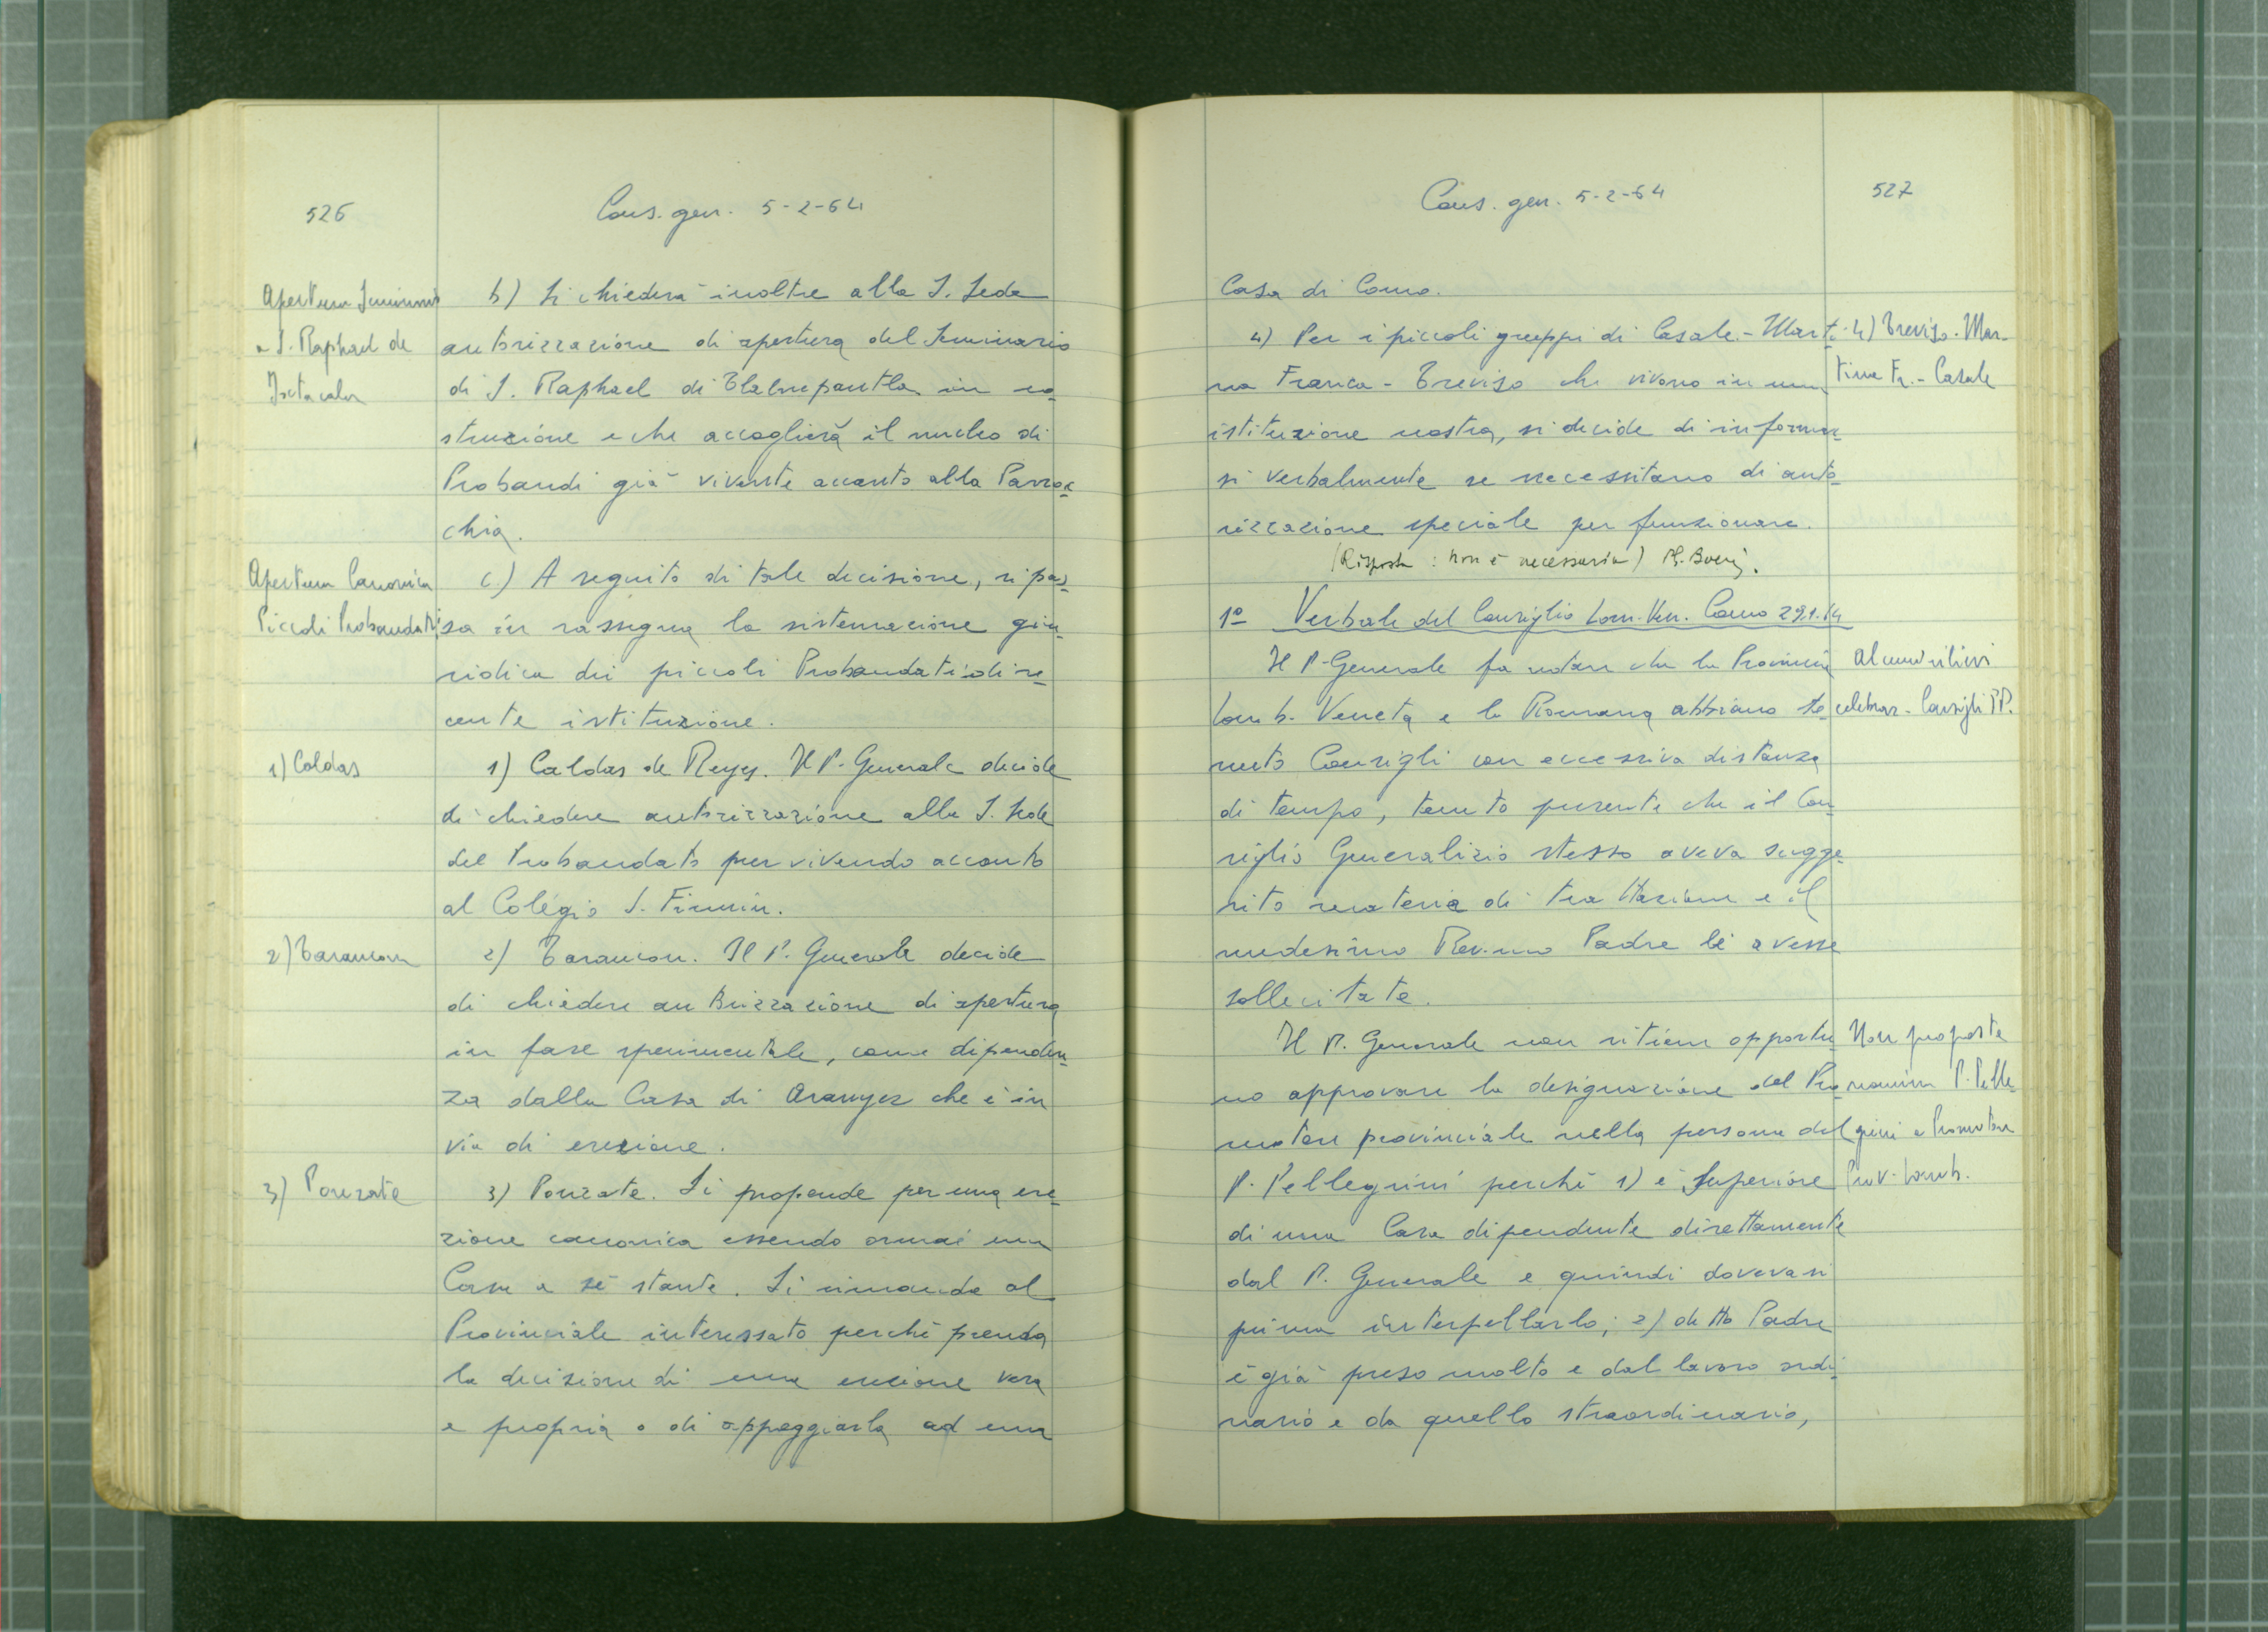 526
Cons. gen. 5-2-64
Apertura Seminario
a S. Raphael de
b) Si chiederà inoltre alla S. Sede
autorizzazione di apertura del Seminario
di S. Raphael di Tlalnepantla in co-
struzione e che accoglierà il nucleo di
Probandi già vivente accanto alla Parroc-
chia.
Apertura Canonica
Piccoli Probandati
c) A seguito di tale decisione, si pas-
sa in rassegna la sistemazione giu-
ridica dei piccoli Probandati di re-
cente istituzione.
1) Caldas
1) Caldas de Reyes. Il P. Generale decide
di chiedere autorizzazione alla S. Sede
del Probandato pur vivendo accanto
al Colégio S. Firmin.
2) Tarancon
2) Tarancon. Il P. Generale decide
di chiedere autorizzazione di apertura
in fase sperimentale, come dipenden-
za dalla Casa di Aranyez che è in
via di erezione.
3) Ponzate
3) Ponzate. Si propende per una ere-
zione canonica essendo ormai una
Casa a sé stante. Si rimanda al
Provinciale interessato perché prenda
la decisione di una erezione vera
e propria o di appoggiarla ad una
Cons. gen. 5-2-64
527
Casa di Como.
4) Per i piccoli gruppi di Casale - Marti-
na Franca - Treviso che vivono in una
istituzione nostra, si decide di informar-
si verbalmente se necessitano di auto-
rizzazione speciale per funzionare.
(Risposta: non è necessaria)
4) Treviso - Mar-
tina Fr. - Casale
1º Verbale del Consiglio Lom. Ven. Como 29.1.64
Il P. Generale fa notare che la Provincia
Lomb. Veneta e la Romana abbiano te-
nuto Consigli con eccessiva distanza
di tempo, tenuto presente che il Con-
siglio Generalizio stesso aveva sugge-
rito materia di trattazione e il
medesimo Rev.mo Padre li avesse
sollecitate.
Alcuni rilievi
celebraz. Consigli PP.
Il P. Generale non ritiene opportu-
no approvare la designazione del Pro-
motore provinciale nella persona del
P. Pellegrini perché 1) è Superiore
di una Casa dipendente direttamente
dal P. Generale e quindi dovevasi
prima interpellarlo; 2) detto Padre
è già preso molto e dal lavoro ordi-
nario e da quello straordinario,
Non proposta
nomina P. Pelle-
grini a Promotore
Prov. Lomb.